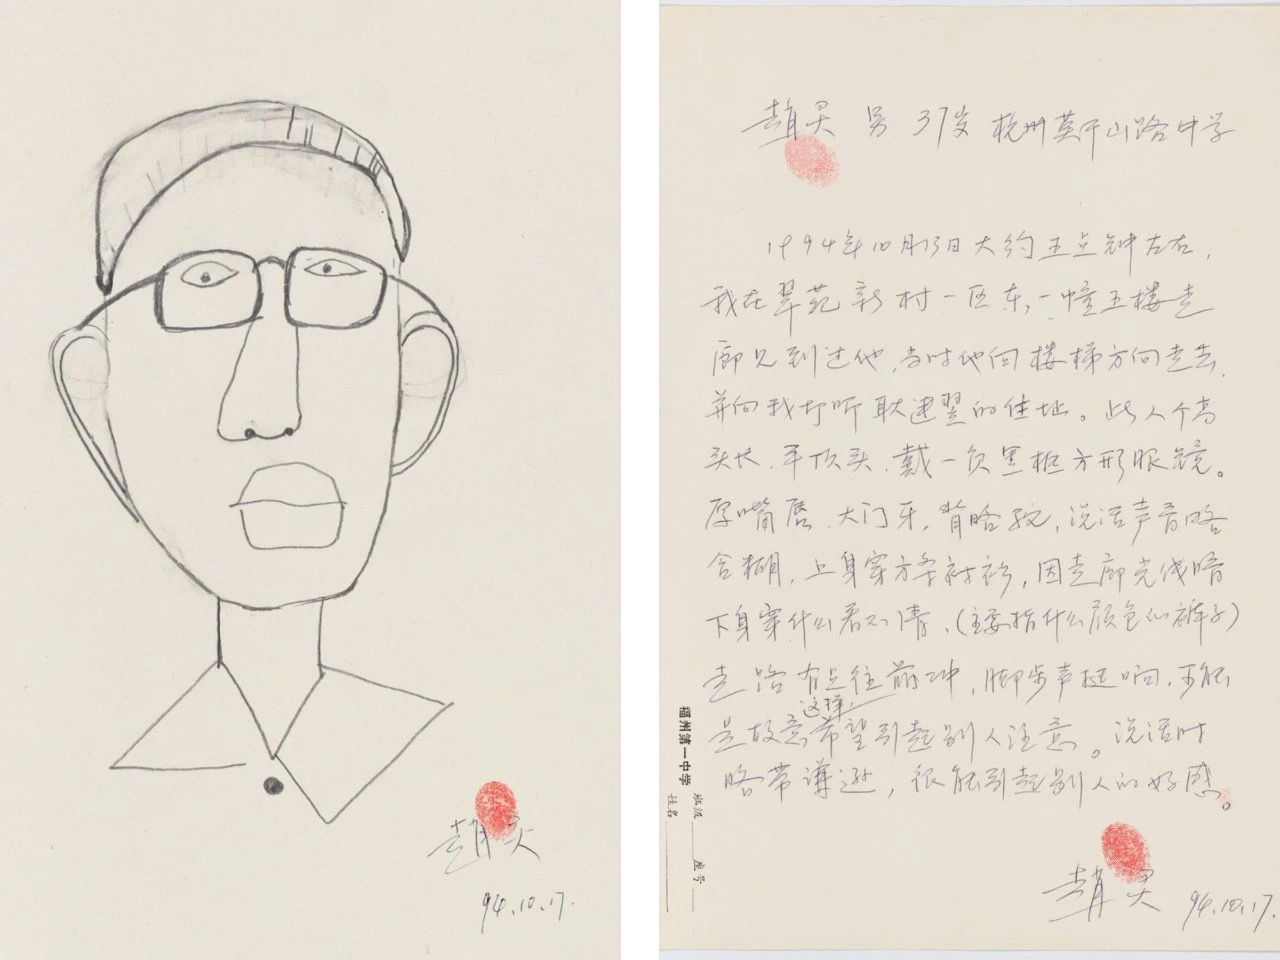 趙昊
94.10.17.
趙昊 男 37岁 杭州莫干山路中学
1994年10月13日大约五点钟左右,
我在翠苑新村一区东,一幢五楼走
廊见到过他,当时他向楼梯方向走去,
并向我打听耿建翌的住址。此人个高
头长,平顶头,戴一负黑框方形眼镜。
厚嘴唇,大门牙,背略驼,说话声音略
含糊,上身穿方条衬衫,因走廊光线暗
下身穿什么看不清,(主要指什么颜色的裤子)
走路有点往前冲,脚步声挺响,可能
是故意这样希望引起别人注意。说话时
略带谦逊,很能引起别人的好感。
趙昊 94.10.17.
福州第一中学
班级 座号
姓名